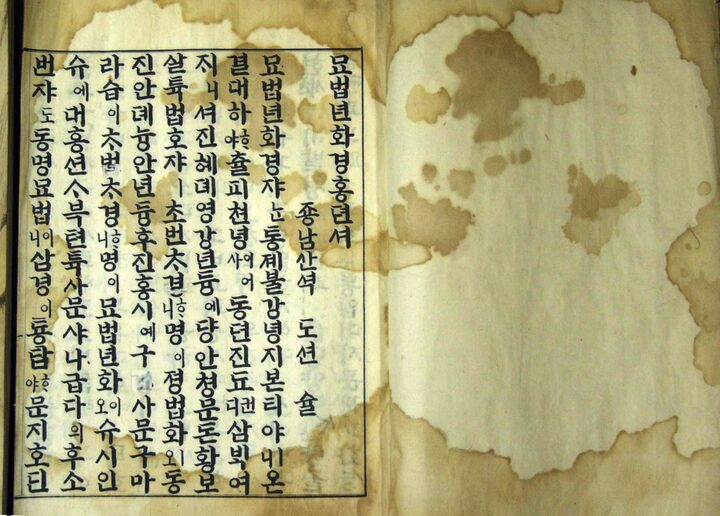 묘법년화경홍뎐셔
죵남산셕 도션 슐
묘법년화경쟈ᄂᆞᆫ통졔불강녕지본티야니온
결대하ᄒᆞ야츌피쳔녕이어사동뎐진됴컨대삼ᄇᆡᆨ여
지니셔진혜뎨영강년듕에당안쳥문돈황보
살튝법호쟈ㅣ초번ᄎᆞ경ᄒᆞ니명이졍법화ㅣ오동
진안뎨늉안년듕후진홍시예구ᄌᆞ사문구마
라습이ᄎᆞ법ᄎᆞ경ᄒᆞ니명이묘법년화이오슈시인
슈에대흥션ᄉᆞ부텬튝사문샤나굽다의후소
번쟈도동명묘법이니삼경이듕탑ᄒᆞ야문지호틴